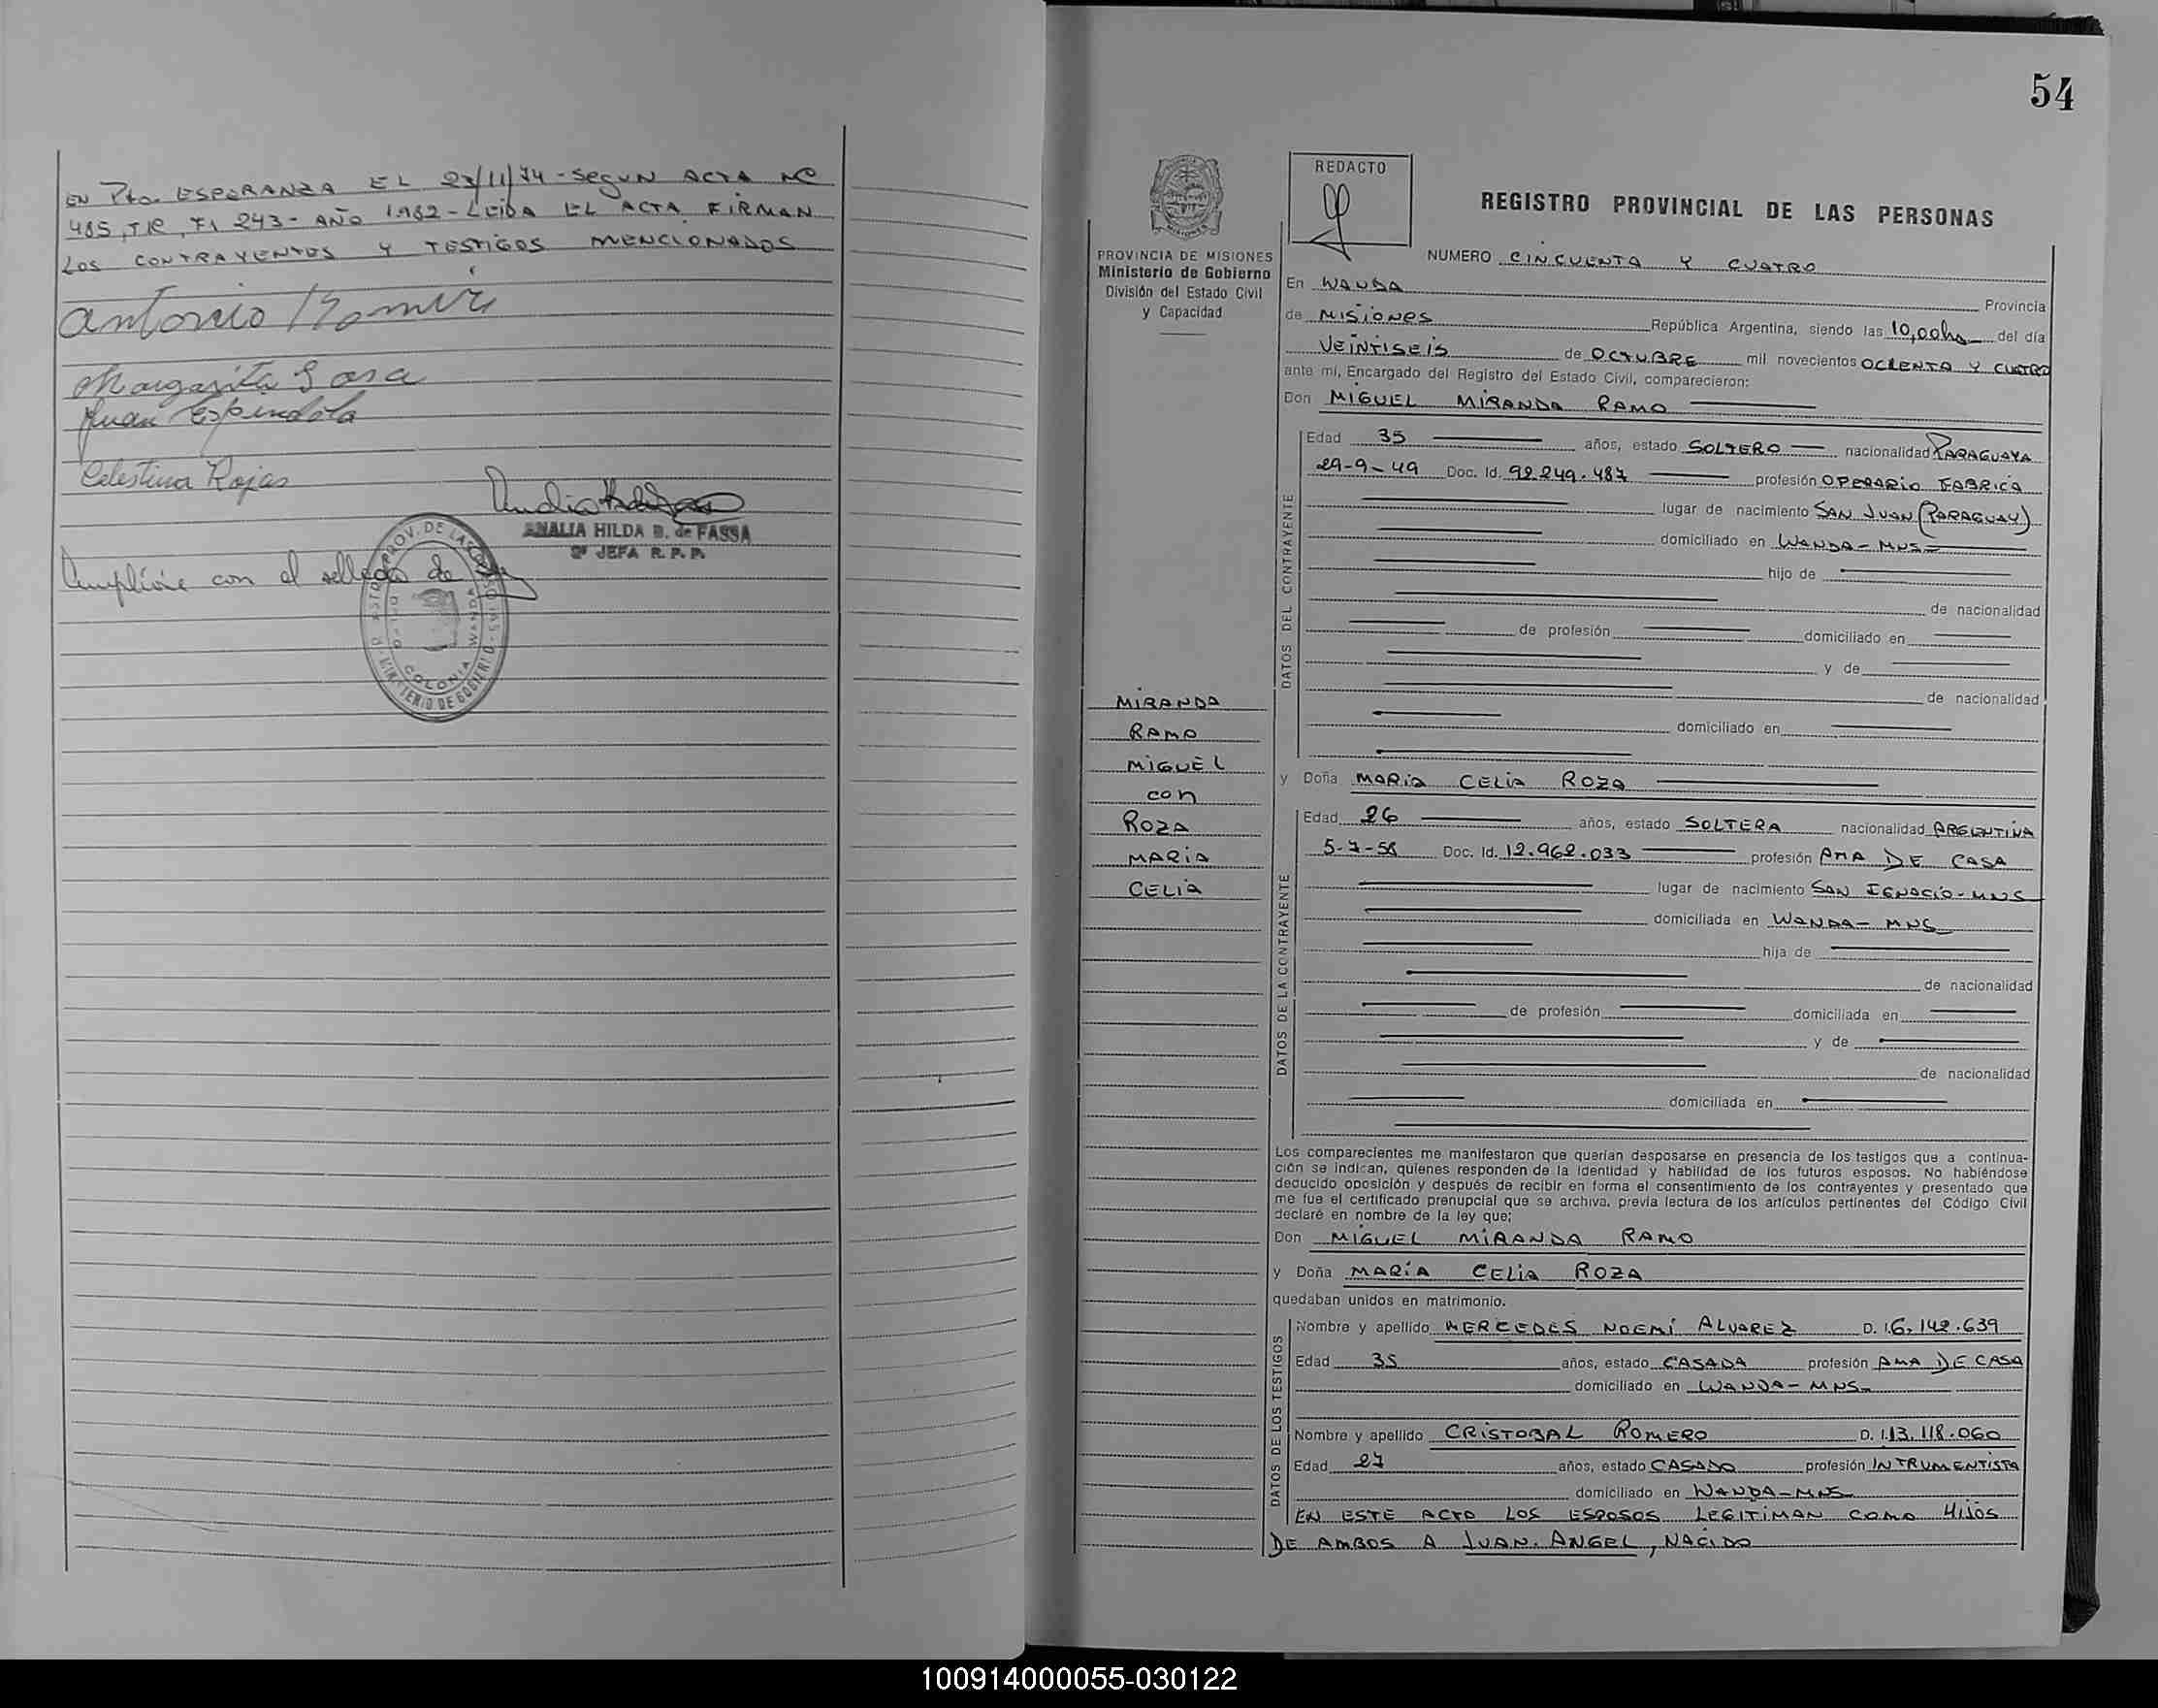 EN Pto. ESPERANZA EL 23/11/74 - SEGUN ACTA Nº
485, T IC, Fº 243 - AÑO 1982 - LEIDA EL ACTA FIRMAN
LOS CONTRAYENTES Y TESTIGOS MENCIONADOS
Antonio
Margarita Sosa
Juan Espindola
Celestina Rojas
ANALIA HILDA B. de FASSA
JEFA R. P. P.
con el sellado de
COLONIA WANDA
54
REDACTO
REGISTRO PROVINCIAL DE LAS PERSONAS
PROVINCIA DE MISIONES
Ministerio de Gobierno
División del Estado Civil
y Capacidad
MIRANDA
RAMO
MIGUEL
con
ROZA
MARIA
CELIA
NUMERO CINCUENTA Y CUATRO
En WANDA Provincia
de MISIONES República Argentina, siendo las 10,00hs del día
VEINTISEIS de OCTUBRE mil novecientos OCHENTA Y CUATRO
ante mí, Encargado del Registro del Estado Civil, comparecieron:
Don MIGUEL MIRANDA RAMO
DATOS DEL CONTRAYENTE
Edad 35 años, estado SOLTERO nacionalidad PARAGUAYA
29-9-49 Doc. Id. 92.249.487 profesión OPERARIO FABRICA
lugar de nacimiento SAN JUAN (PARAGUAY)
domiciliado en WANDA - MNS
hijo de
de nacionalidad
de profesión domiciliado en
y de
de nacionalidad
domiciliado en
y Doña MARIA CELIA ROZA
DATOS DE LA CONTRAYENTE
Edad 26 años, estado SOLTERA nacionalidad ARGENTINA
5-7-58 Doc. Id. 12.962.033 profesión AMA DE CASA
lugar de nacimiento SAN IGNACIO - MNS
domiciliada en WANDA - MNS
hija de
de nacionalidad
de profesión domiciliada en
y de
de nacionalidad
domiciliada en
Los comparecientes me manifestaron que querían desposarse en presencia de los testigos que a continua-
ción se indican, quienes responden de la identidad y habilidad de los futuros esposos. No habiéndose
deducido oposición y después de recibir en forma el consentimiento de los contrayentes y presentado que
me fue el certificado prenupcial que se archiva, previa lectura de los artículos pertinentes del Código Civil
declaré en nombre de la ley que;
Don MIGUEL MIRANDA RAMO
y Doña MARÍA CELIA ROZA
quedaban unidos en matrimonio.
DATOS DE LOS TESTIGOS
Nombre y apellido MERCEDES NOEMÍ ALVAREZ D. I. 6.142.639
Edad 35 años, estado CASADA profesión AMA DE CASA
domiciliado en WANDA - MNS
Nombre y apellido CRISTOBAL ROMERO D. I. 13.118.060
Edad 27 años, estado CASADO profesión INTRUMENTISTA
domiciliado en WANDA - MNS
EN ESTE ACTO LOS ESPOSOS LEGITIMAN COMO HIJOS
DE AMBOS A JUAN ANGEL, NACIDO
100914000055-030122